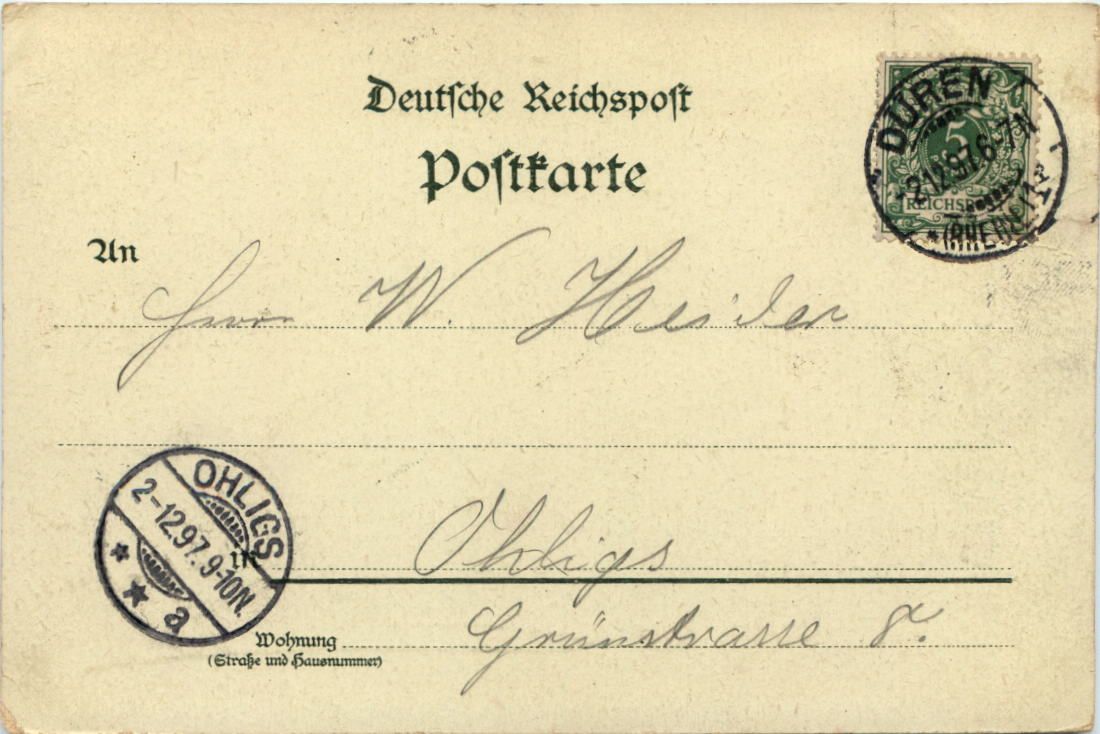 Deutsche Reichspost
Postkarte
DÜREN
-2.12.97.6-7N
*(RHEINL)*
5
REICHSPOST
An
Herrn W. Heider
OHLIGS
2-12.97.9-10N.
* * a
in Ohligs
Wohnung Grünstrasse 8.
(Straße und Hausnummer)